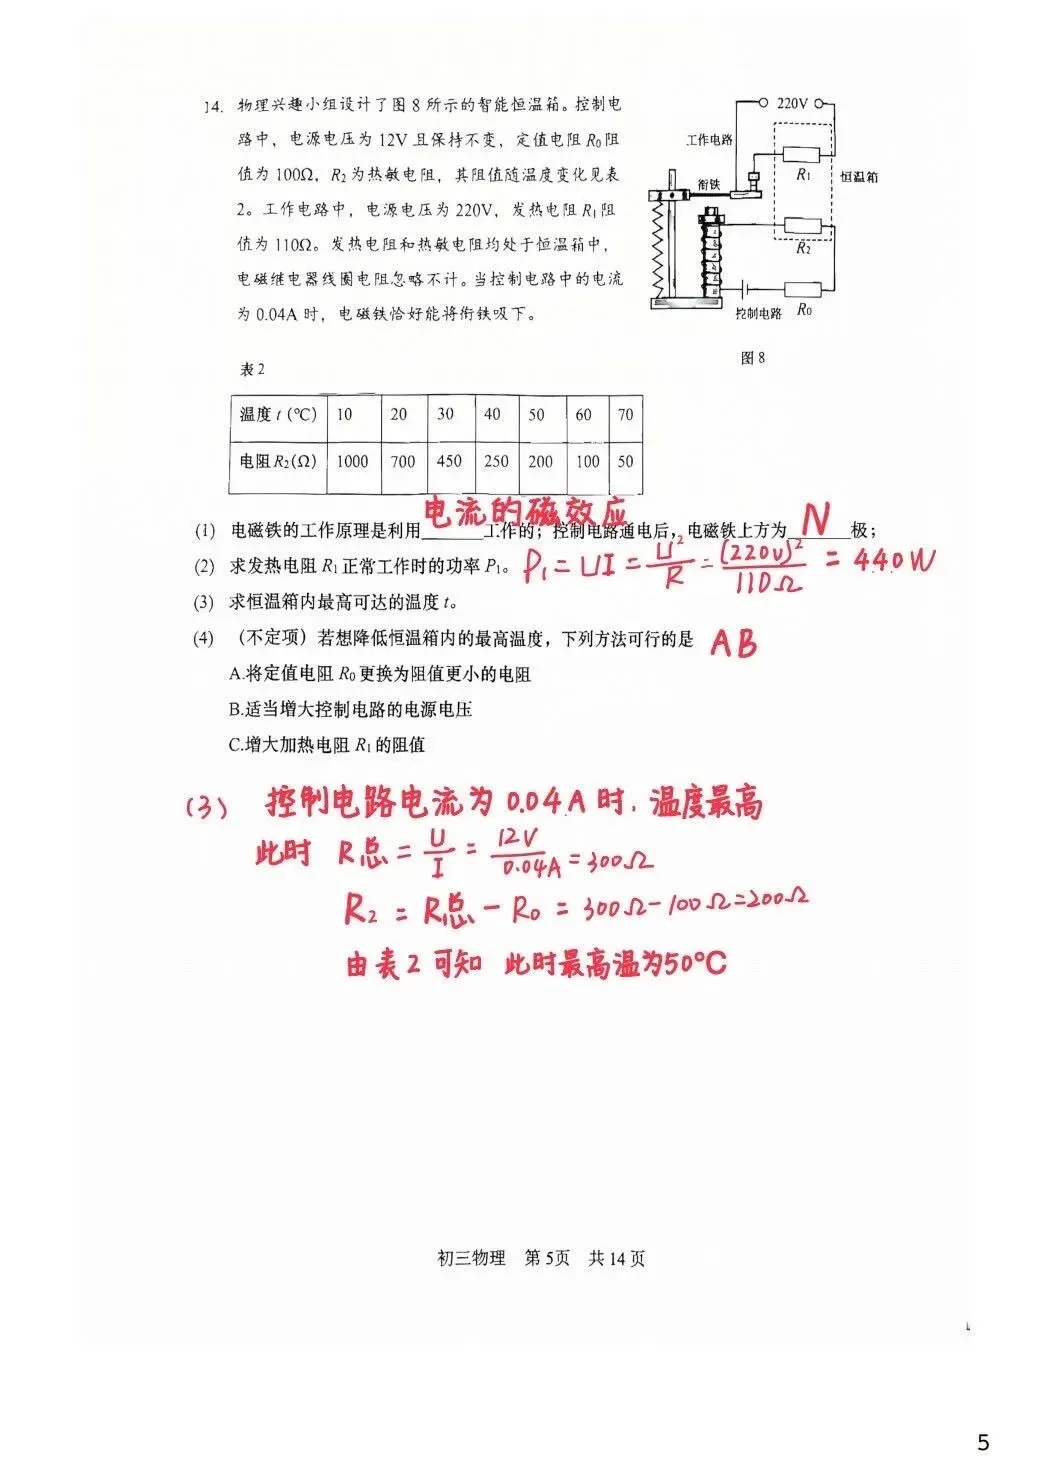 14. 物理兴趣小组设计了图 8 所示的智能恒温箱。控制电
路中，电源电压为 12V 且保持不变，定值电阻 R₀阻
值为 100Ω，R₂为热敏电阻，其阻值随温度变化见表
2。工作电路中，电源电压为 220V，发热电阻 R₁阻
值为 110Ω。发热电阻和热敏电阻均处于恒温箱中，
电磁继电器线圈电阻忽略不计。当控制电路中的电流
为 0.04A 时，电磁铁恰好能将衔铁吸下。
220V
工作电路
衔铁
R₁
恒温箱
R₂
控制电路
R₀
图 8
表 2
温度 t (℃) 10 20 30 40 50 60 70
电阻 R₂(Ω) 1000 700 450 250 200 100 50
电流的磁效应
N
(1) 电磁铁的工作原理是利用______工作的；控制电路通电后，电磁铁上方为______极；
(2) 求发热电阻 R₁正常工作时的功率 P₁。 P₁=UI=U²/R=(220V)²/110Ω=440W
(3) 求恒温箱内最高可达的温度 t。
(4) （不定项）若想降低恒温箱内的最高温度，下列方法可行的是 AB
A.将定值电阻 R₀更换为阻值更小的电阻
B.适当增大控制电路的电源电压
C.增大加热电阻 R₁的阻值
(3) 控制电路电流为 0.04A 时，温度最高
此时 R总=U/I=12V/0.04A=300Ω
R₂=R总-R₀=300Ω-100Ω=200Ω
由表2可知 此时最高温为50℃
初三物理 第 5页 共 14 页
5